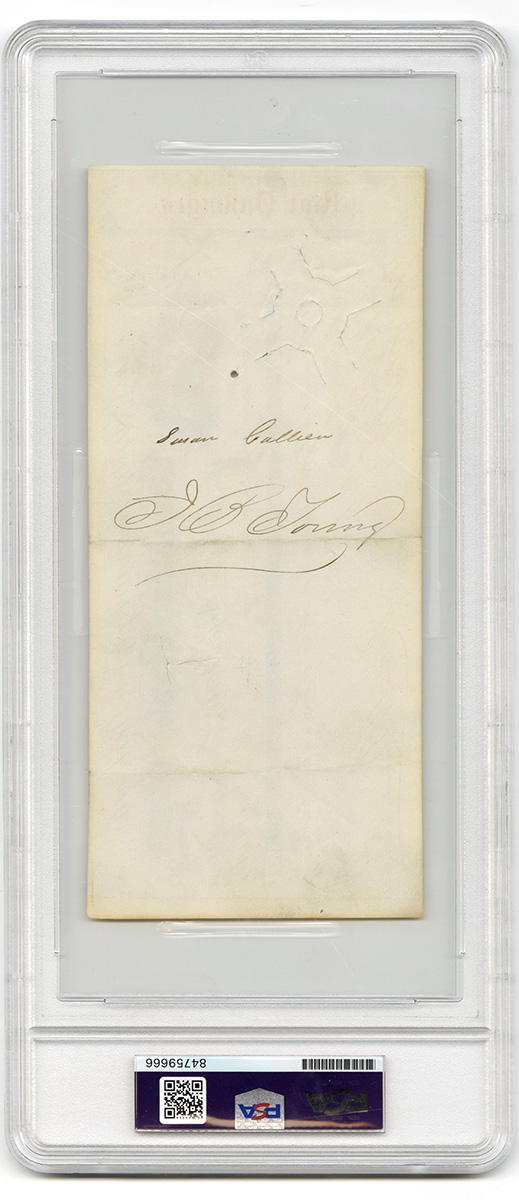 Susan Callien
J B Young
84759666
PSA
PSA